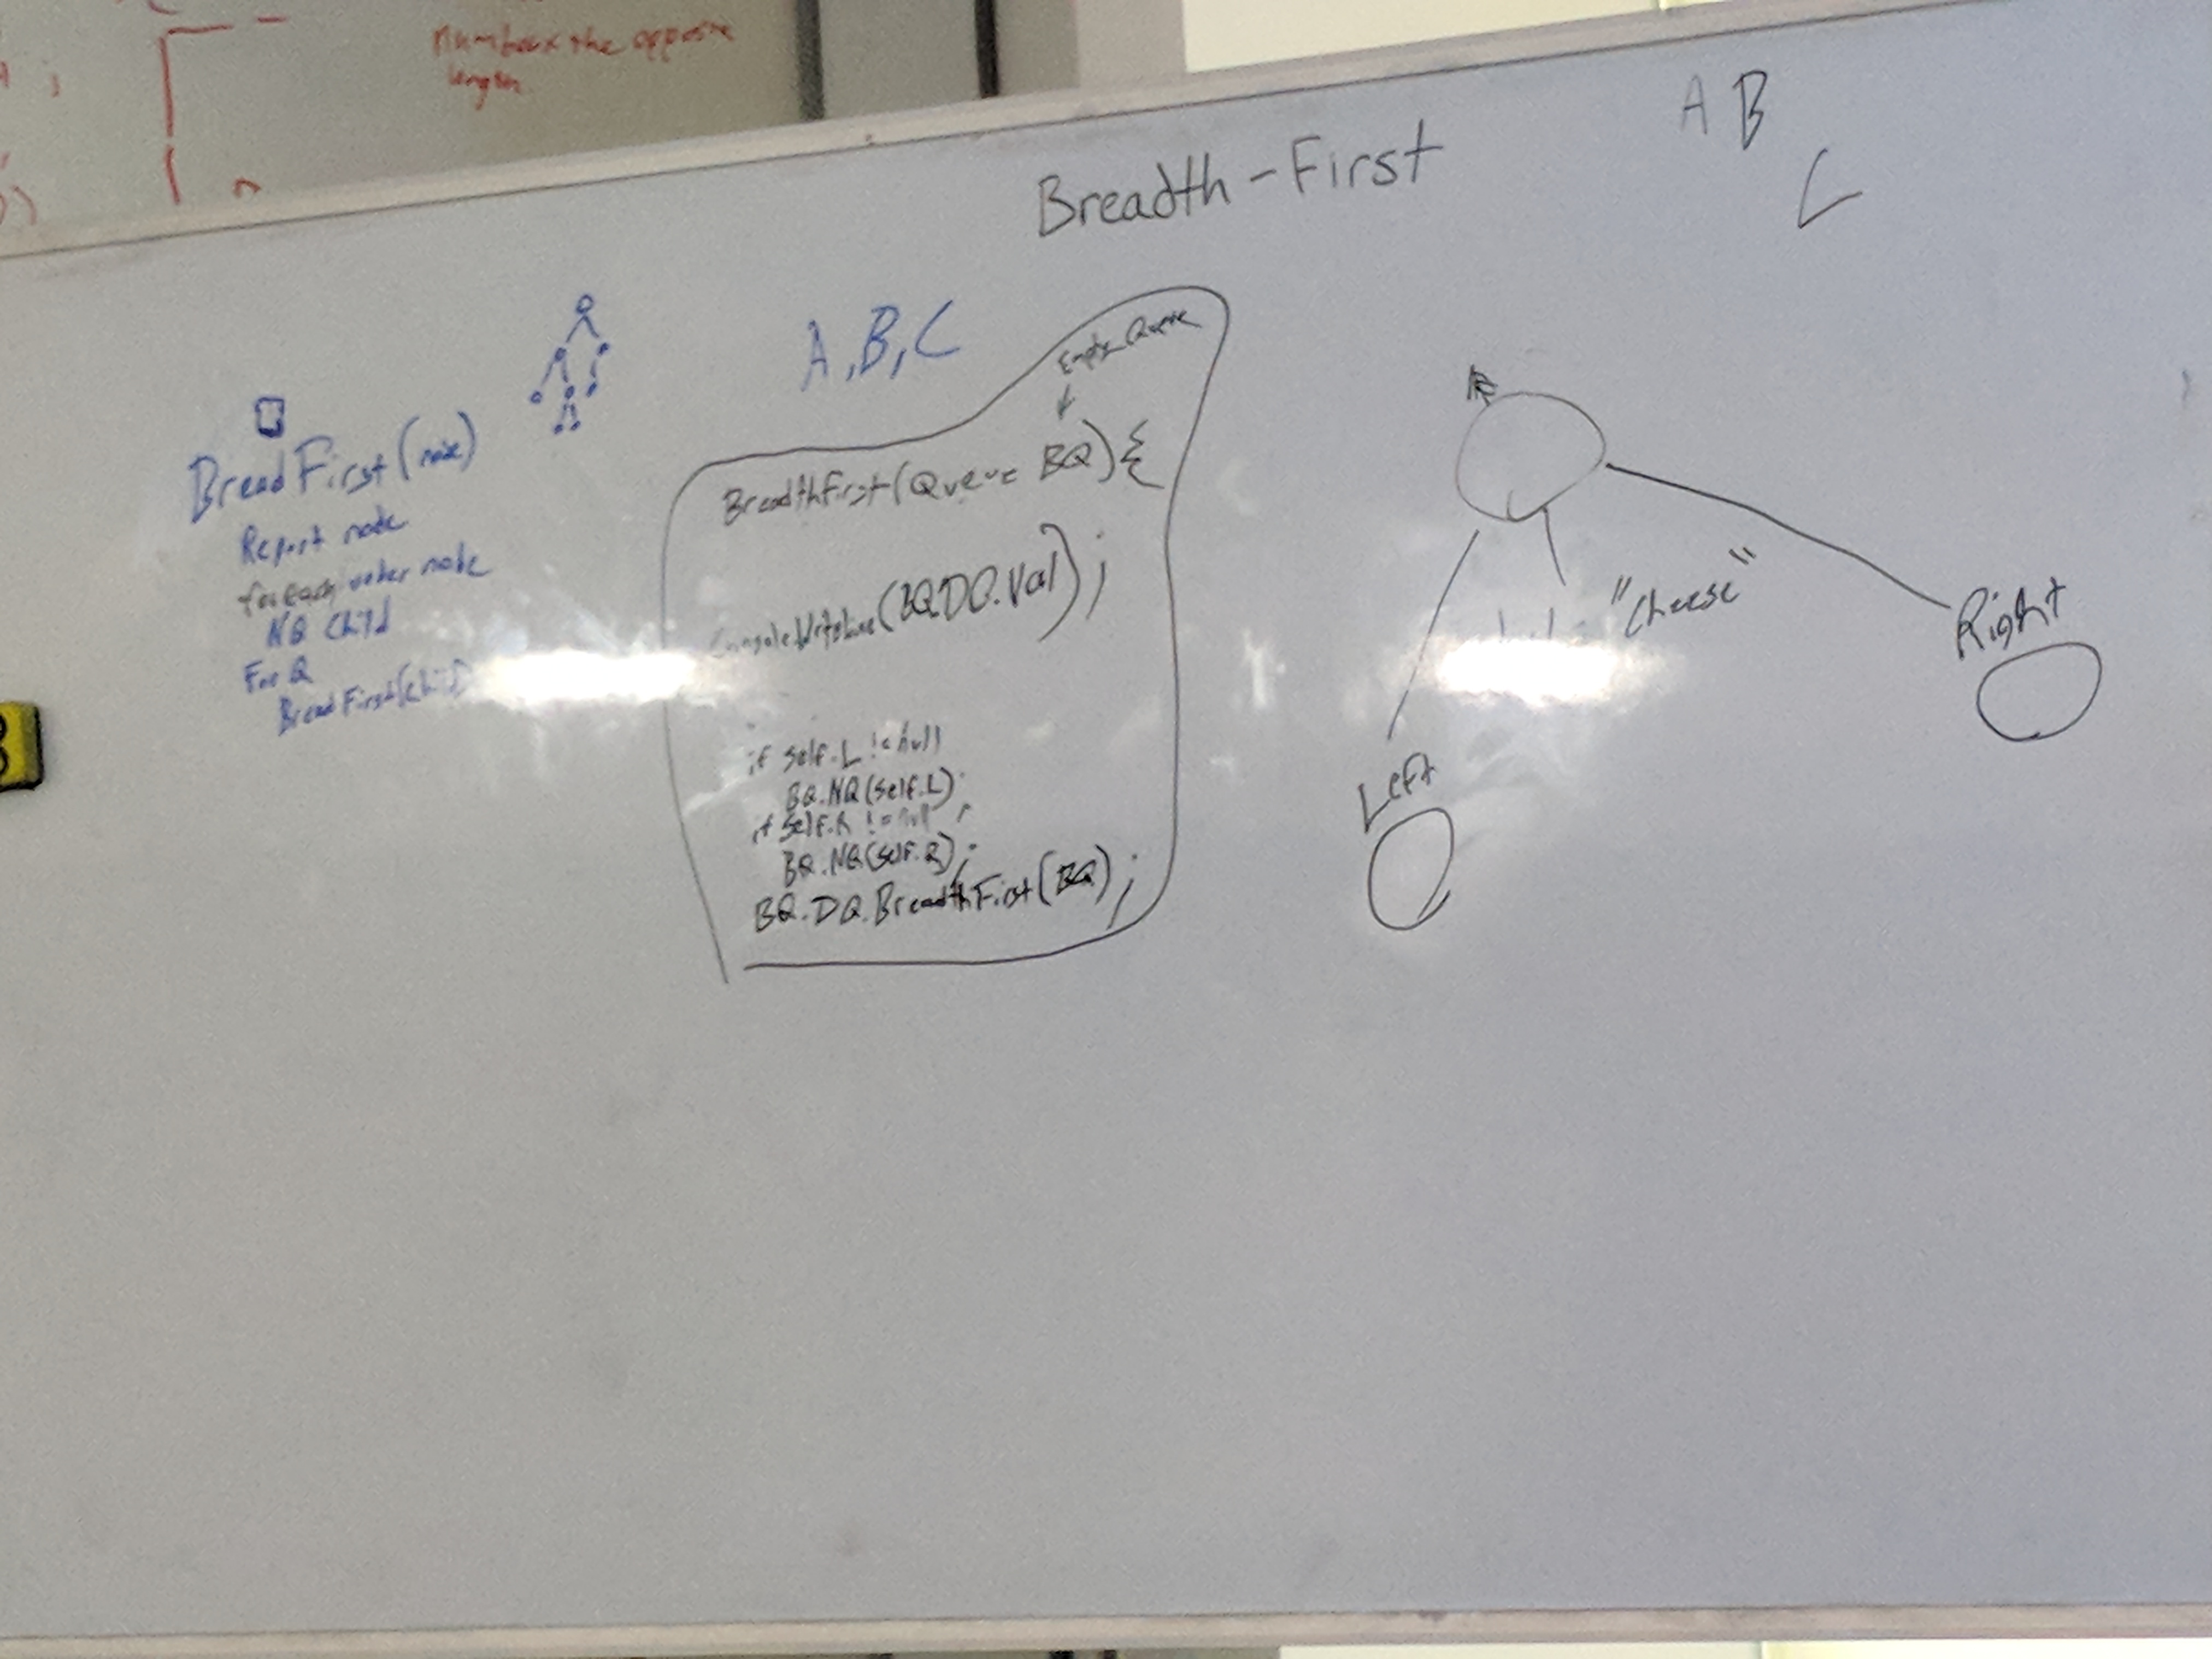 numbers the opposite
length
n
A B
C
Breadth-First
A, B, C
Empty Queue
BreadFirst(node)
Report node
foreach under node
NQ Child
For Q
BreadFirst(child)
BreadthFirst(Queue BQ){
Console.WriteLine(BQ.DQ.Val);
if self.L != null
BQ.NQ(self.L);
if self.R != null
BQ.NQ(self.R);
BQ.DQ.BreadthFirst(BQ);
"Cheese"
Right
Left